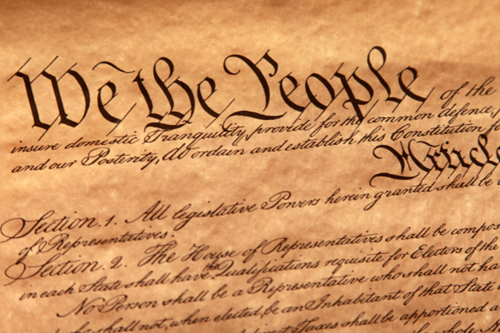 We the People of the
insure domestic Tranquility, provide for the common defence,
and our Posterity, do ordain and establish this Constitution
Article
Section. 1. All legislative Powers herein granted shall be
of Representatives.
Section. 2. The House of Representatives shall be compos
in each State shall have Qualifications requisite for Electors of the
No Person shall be a Representative who shall not ha
shall not, when elected, be an Inhabitant of that State
Taxes shall be apportioned